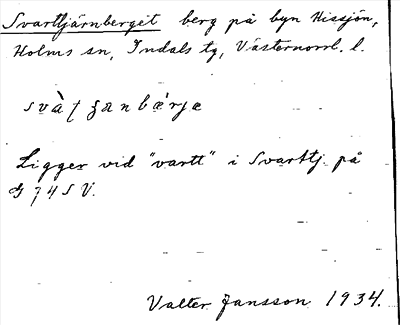 Svarttjärnberget berg på byn Hissjön,
Holms sn, Indals tg, Västernorrl. l.
Ligger vid "vartt" i Svarttj. på
G 74 S V.
Valter Jansson 1934.